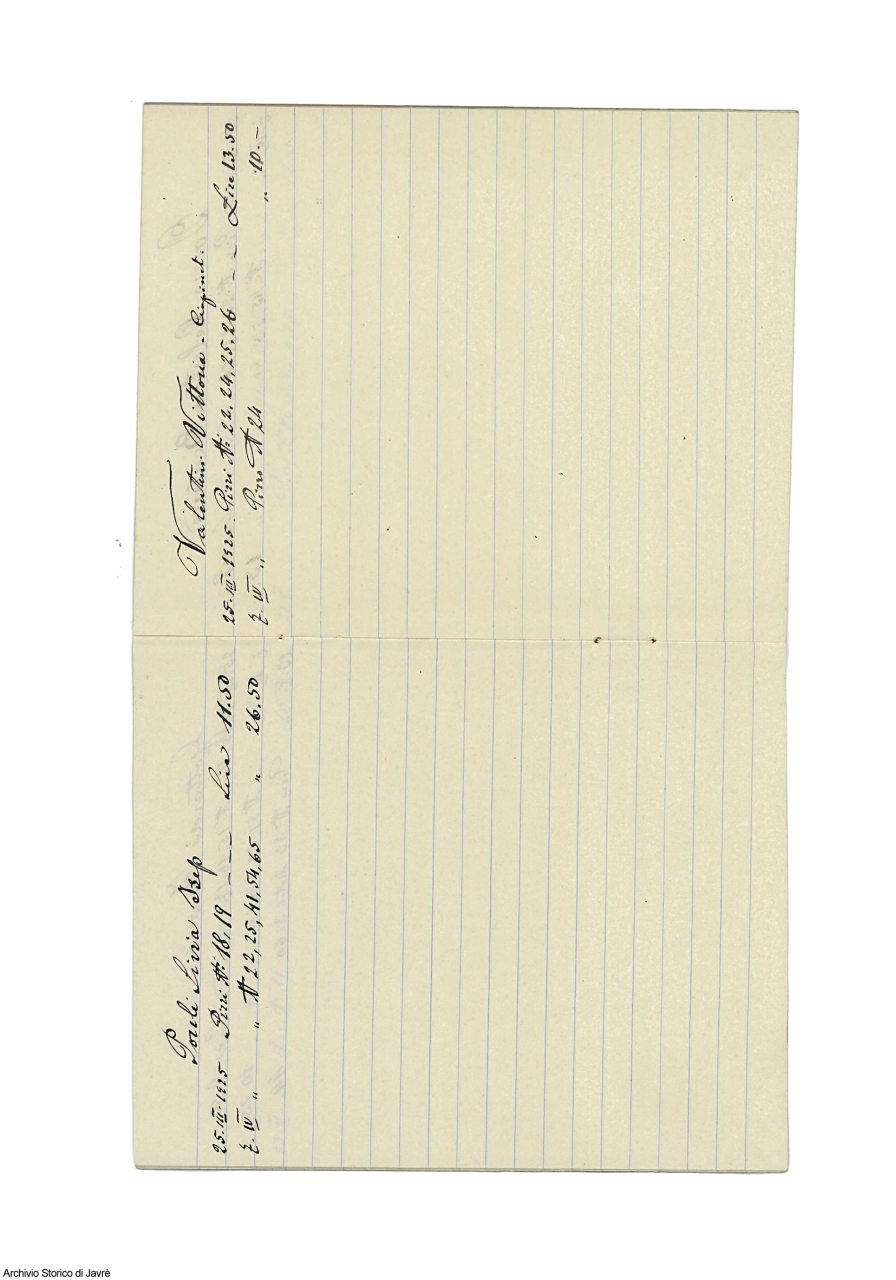 Ponli Livia Isep
25.III.1925 Pini N: 18,19 - - - Lire 11.50
2. IV „ „ N 22,25,41,54,65 „ 26.50
Valentini Vittoria -
25.III.1925 Pini N: 22,24,25,26 - - Lire 13.50
2. IV „ Pino N 24 „ 10.-
Archivio Storico di Javrè